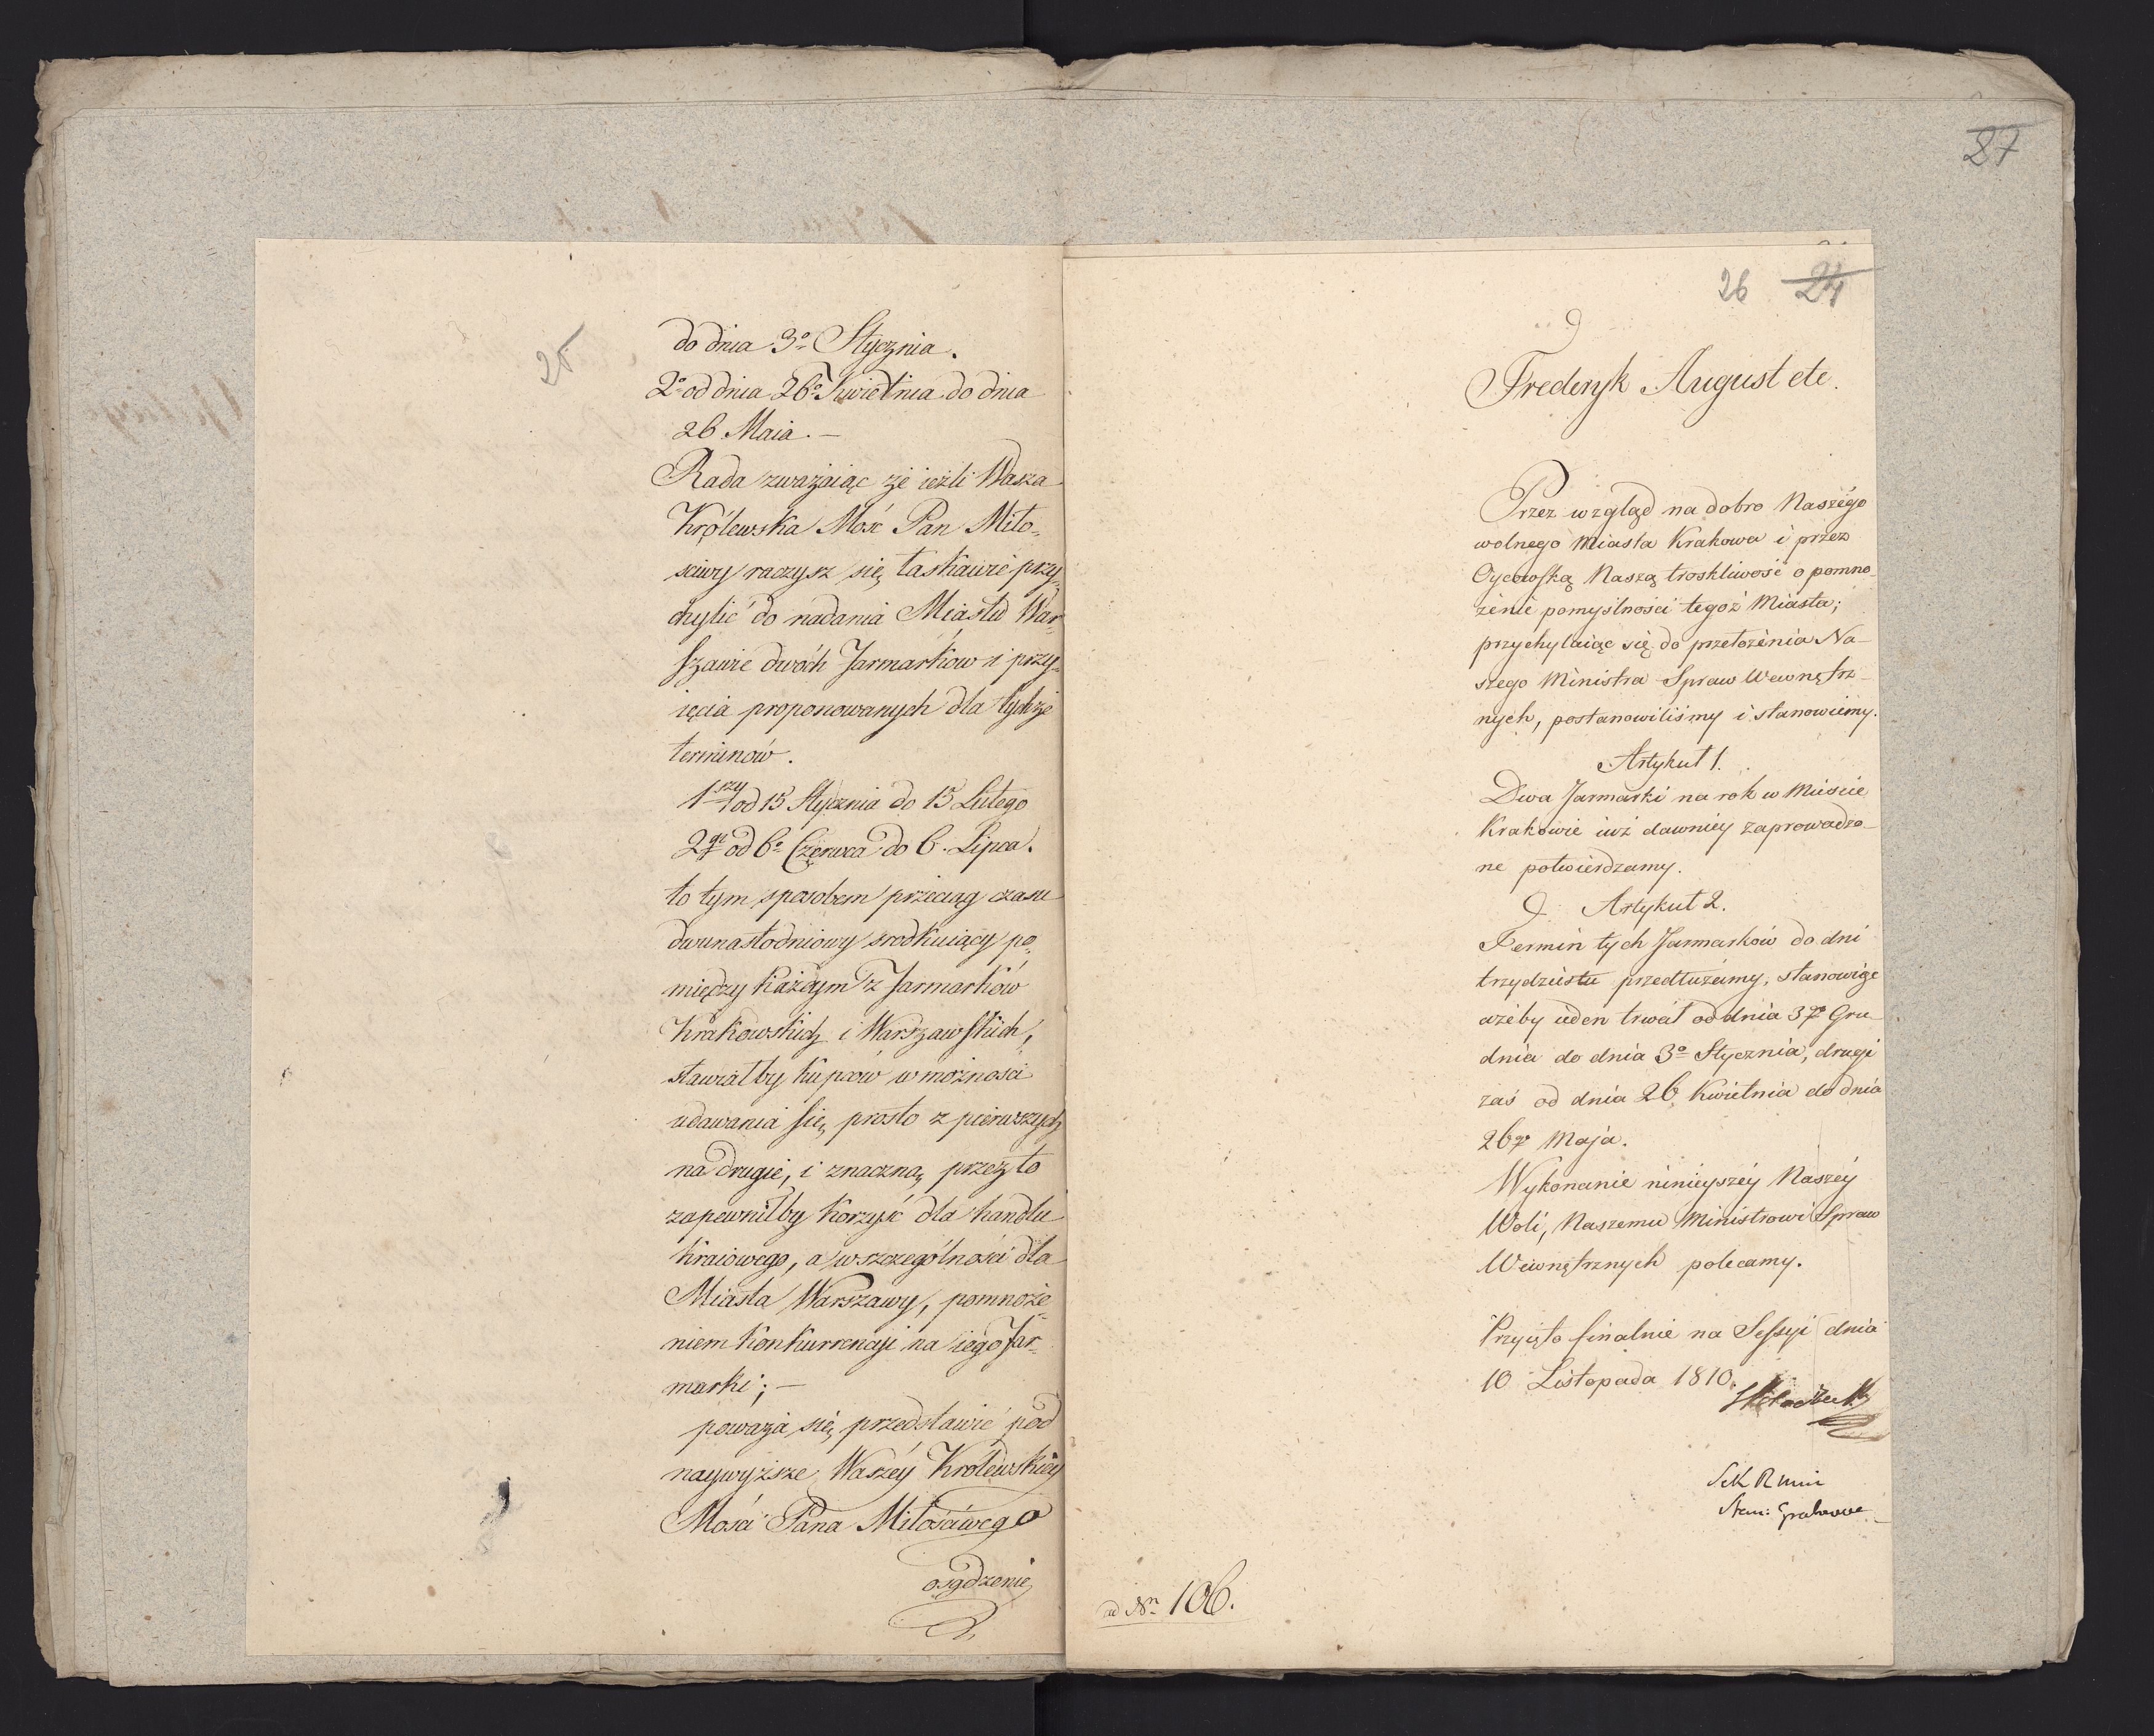 25
do dnia 3º Stycznia.
2º od dnia 26º Kwietnia do dnia
26 Maia. —
Rada zważaiąc że ieżli Wasza
Królewska Mość Pan Miło-
sciwy raczysz się łaskawie przy-
chylić do nadania Miastu War-
szawie dwóch Jarmarkow i przy-
ięcia proponowanych dla tychże
terminów.
1szy od 15 Stycznia do 15 Lutego
2gi od 6º Czerwca do 6. Lipca.
to tym sposobem przeciąg czasu
dwunastodniowy srodkuiący po-
między każdym z Jarmarków
Krakowskich i Warszawskich,
stawiałby kupców w możnosci
udawania się prosto z pierwszych
na drugie, i znaczną przez to
zapewniłby korzyść dla handlu
kraiowego, a w szczególności dla
Miasta Warszawy, pomnoże-
niem konkurrencyi na iego Jar-
marki; —
poważa się przedstawić pod
naywyższe Waszéy Królewskiey
Mości Pana Miłościwego
osądzenie
27
26 24
Frederyk August etc.
Przez wzgląd na dobro Naszégo
wolnego Miasta Krakowa i przez
Oycowską Naszą troskliwość o pomno-
żenie pomyślności tegoż Miasta;
przychylaiąc się do przełożenia Na-
szego Ministra Spraw Wewnętrz-
nych, postanowiliśmy i stanowiemy.
Artykuł 1.
Dwa Jarmarki na rok w Mieście
Krakowie iuż dawniey zaprowadzo-
ne potwierdzamy.
Artykuł 2.
Termin tych Jarmarków do dni
trzydziestu przedłużamy, stanowiąc
ażeby ieden trwał od dnia 3go Gru-
dnia do dnia 3º Stycznia, drugi
zaś od dnia 26 Kwietnia do dnia
26go Maja.
Wykonanie ninieyszéy Naszéy
Woli, Naszemu Ministrowi Spraw
Wewnętrznych polecamy.
Przyięto finalnie na Sessyi dnia
10 Listopada 1810.
Sek R Min
Stan: Grabows
ad Nº 106.